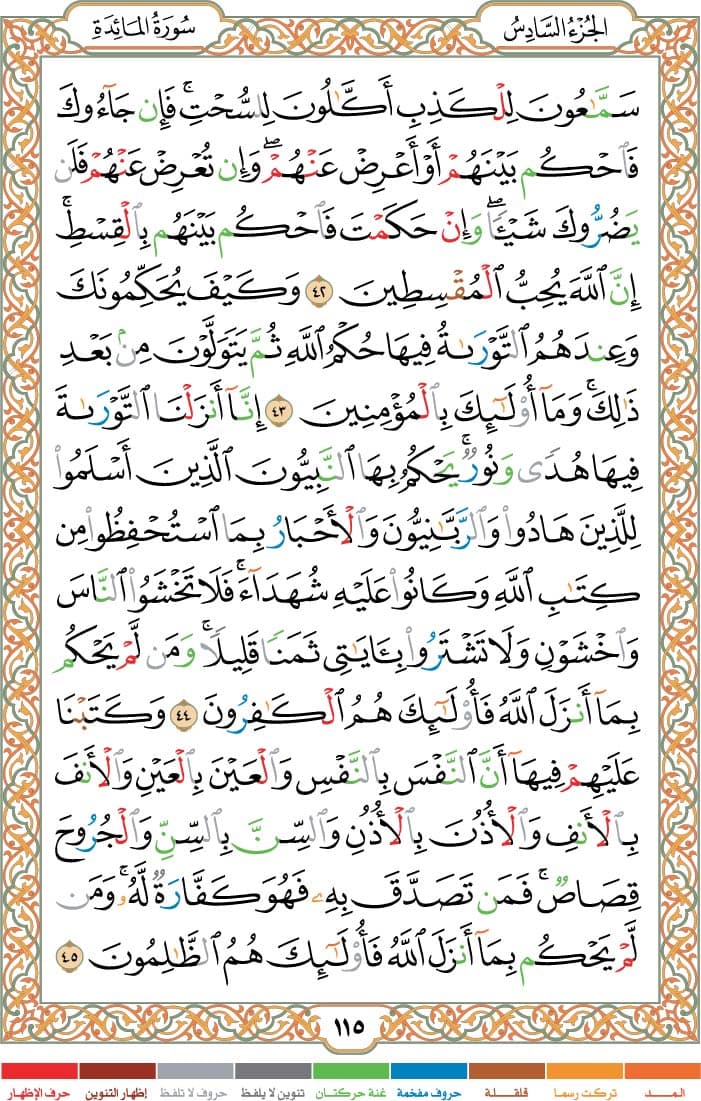 الجُزْءُ السَّادِسُ
سُورَةُ المَائِدَةِ
سَمَّٰعُونَ لِلْكَذِبِ أَكَّٰلُونَ لِلسُّحْتِ ۚ فَإِن جَآءُوكَ
فَٱحْكُم بَيْنَهُمْ أَوْ أَعْرِضْ عَنْهُمْ ۖ وَإِن تُعْرِضْ عَنْهُمْ فَلَن
يَضُرُّوكَ شَيْـًٔا ۖ وَإِنْ حَكَمْتَ فَٱحْكُم بَيْنَهُم بِٱلْقِسْطِ ۚ
إِنَّ ٱللَّهَ يُحِبُّ ٱلْمُقْسِطِينَ ٤٢ وَكَيْفَ يُحَكِّمُونَكَ
وَعِندَهُمُ ٱلتَّوْرَىٰةُ فِيهَا حُكْمُ ٱللَّهِ ثُمَّ يَتَوَلَّوْنَ مِنۢ بَعْدِ
ذَٰلِكَ ۚ وَمَآ أُو۟لَٰٓئِكَ بِٱلْمُؤْمِنِينَ ٤٣ إِنَّآ أَنزَلْنَا ٱلتَّوْرَىٰةَ
فِيهَا هُدًى وَنُورٌ ۚ يَحْكُمُ بِهَا ٱلنَّبِيُّونَ ٱلَّذِينَ أَسْلَمُوا۟
لِلَّذِينَ هَادُوا۟ وَٱلرَّبَّٰنِيُّونَ وَٱلْأَحْبَارُ بِمَا ٱسْتُحْفِظُوا۟ مِن
كِتَٰبِ ٱللَّهِ وَكَانُوا۟ عَلَيْهِ شُهَدَآءَ ۚ فَلَا تَخْشَوُا۟ ٱلنَّاسَ
وَٱخْشَوْنِ وَلَا تَشْتَرُوا۟ بِـَٔايَٰتِى ثَمَنًا قَلِيلًا ۚ وَمَن لَّمْ يَحْكُم
بِمَآ أَنزَلَ ٱللَّهُ فَأُو۟لَٰٓئِكَ هُمُ ٱلْكَٰفِرُونَ ٤٤ وَكَتَبْنَا
عَلَيْهِمْ فِيهَآ أَنَّ ٱلنَّفْسَ بِٱلنَّفْسِ وَٱلْعَيْنَ بِٱلْعَيْنِ وَٱلْأَنفَ
بِٱلْأَنفِ وَٱلْأُذُنَ بِٱلْأُذُنِ وَٱلسِّنَّ بِٱلسِّنِّ وَٱلْجُرُوحَ
قِصَاصٌ ۚ فَمَن تَصَدَّقَ بِهِۦ فَهُوَ كَفَّارَةٌ لَّهُۥ ۚ وَمَن
لَّمْ يَحْكُم بِمَآ أَنزَلَ ٱللَّهُ فَأُو۟لَٰٓئِكَ هُمُ ٱلظَّٰلِمُونَ ٤٥
١١٥
المــد تركت رسما قلقـلة حروف مفخمة غنة حركتان تنوين لا يلفظ حروف لا تلفظ إظهار التنوين حرف الإظهار